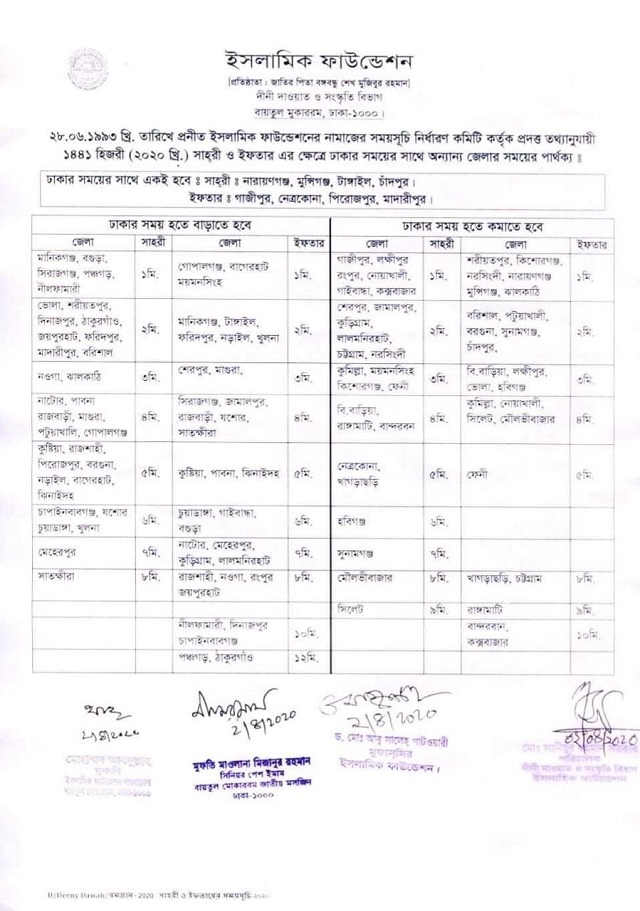 ইসলামিক ফাউন্ডেশন
|প্রতিষ্ঠাতা : জাতির পিতা বঙ্গবন্ধু শেখ মুজিবুর রহমান|
দীনী দাওয়াত ও সংস্কৃতি বিভাগ
বায়তুল মুকাররম, ঢাকা-১০০০।
২৮.০৬.১৯৯৩ খ্রি. তারিখে প্রনীত ইসলামিক ফাউন্ডেশনের নামাজের সময়সূচি নির্ধারণ কমিটি কর্তৃক প্রদত্ত তথ্যানুযায়ী
১৪৪১ হিজরী (২০২০ খ্রি.) সাহ্‌রী ও ইফতার এর ক্ষেত্রে ঢাকার সময়ের সাথে অন্যান্য জেলার সময়ের পার্থক্য ঃ
ঢাকার সময়ের সাথে একই হবে ঃ সাহ্‌রী ঃ নারায়ণগঞ্জ, মুন্সিগঞ্জ, টাঙ্গাইল, চাঁদপুর।
ইফতার ঃ গাজীপুর, নেত্রকোনা, পিরোজপুর, মাদারীপুর।
ঢাকার সময় হতে বাড়াতে হবে ঢাকার সময় হতে কমাতে হবে
জেলা সাহরী জেলা ইফতার জেলা সাহরী জেলা ইফতার
মানিকগঞ্জ, বগুড়া,
সিরাজগঞ্জ, পঞ্চগড়,
নীলফামারী
১মি.
গোপালগঞ্জ, বাগেরহাট
ময়মনসিংহ
১মি.
গাজীপুর, লক্ষীপুর
রংপুর, নোয়াখালী,
গাইবান্ধা, কক্সবাজার
১মি.
শরীয়তপুর, কিশোরগঞ্জ,
নরসিংদী, নারায়ণগঞ্জ
মুন্সিগঞ্জ, ঝালকাঠি
১মি.
ভোলা, শরীয়তপুর,
দিনাজপুর, ঠাকুরগাঁও,
জয়পুরহাট, ফরিদপুর,
মাদারীপুর, বরিশাল
২মি.
মানিকগঞ্জ, টাঙ্গাইল,
ফরিদপুর, নড়াইল, খুলনা
২মি.
শেরপুর, জামালপুর,
কুড়িগ্রাম,
লালমনিরহাট,
চট্টগ্রাম, নরসিংদী
২মি.
বরিশাল, পটুয়াখালী,
বরগুনা, সুনামগঞ্জ,
চাঁদপুর,
২মি.
নওগা, ঝালকাঠি ৩মি. শেরপুর, মাগুরা, ৩মি.
কুমিল্লা, ময়মনসিংহ
কিশোরগঞ্জ, ফেনী
৩মি.
বি.বাড়িয়া, লক্ষীপুর,
ভোলা, হবিগঞ্জ
৩মি.
নাটোর, পাবনা
রাজবাড়ী, মাগুরা,
পটুয়াখালি, গোপালগঞ্জ
৪মি.
সিরাজগঞ্জ, জামালপুর,
রাজবাড়ী, যশোর,
সাতক্ষীরা
৪মি.
বি.বাড়িয়া,
রাঙ্গামাটি, বান্দরবন
৪মি.
কুমিল্লা, নোয়াখালী,
সিলেট, মৌলভীবাজার
৪মি.
কুষ্টিয়া, রাজশাহী,
পিরোজপুর, বরগুনা,
নড়াইল, বাগেরহাট,
ঝিনাইদহ
৫মি.
কুষ্টিয়া, পাবনা, ঝিনাইদহ ৫মি.
নেত্রকোনা,
খাগড়াছড়ি
৫মি.
ফেনী ৫মি.
চাপাইনবাবগঞ্জ, যশোর
চুয়াডাঙ্গা, খুলনা
৬মি.
চুয়াডাঙ্গা, গাইবান্ধা,
বগুড়া
৬মি.
হবিগঞ্জ ৬মি.
মেহেরপুর ৭মি.
নাটোর, মেহেরপুর,
কুড়িগ্রাম, লালমনিরহাট
৭মি.
সুনামগঞ্জ ৭মি.
সাতক্ষীরা ৮মি.
রাজশাহী, নওগা, রংপুর
জয়পুরহাট
৮মি.
মৌলভীবাজার ৮মি. খাগড়াছড়ি, চট্টগ্রাম ৮মি.
সিলেট ৯মি. রাঙ্গামাটি ৯মি.
নীলফামারী, দিনাজপুর
চাপাইনবাবগঞ্জ
১০মি.
বান্দরবান,
কক্সবাজার
১০মি.
পঞ্চগড়, ঠাকুরগাঁও ১২মি.
2/8/2020
2/8/2020
02/08/2020
মুফতি মাওলানা মিজানুর রহমান
সিনিয়র পেশ ইমাম
বায়তুল মোকাররম জাতীয় মসজিদ
ঢাকা-১০০০
ড. মোঃ আবু সালেহ পাটওয়ারী
মুফাসসির
ইসলামিক ফাউন্ডেশন।
পরিচালক
দীনী দাওয়াত ও সংস্কৃতি বিভাগ
ইসলামিক ফাউন্ডেশন
D/Deeny Dawah/রমজান-2020 সাহরী ও ইফতারের সময়সূচি-২০২০